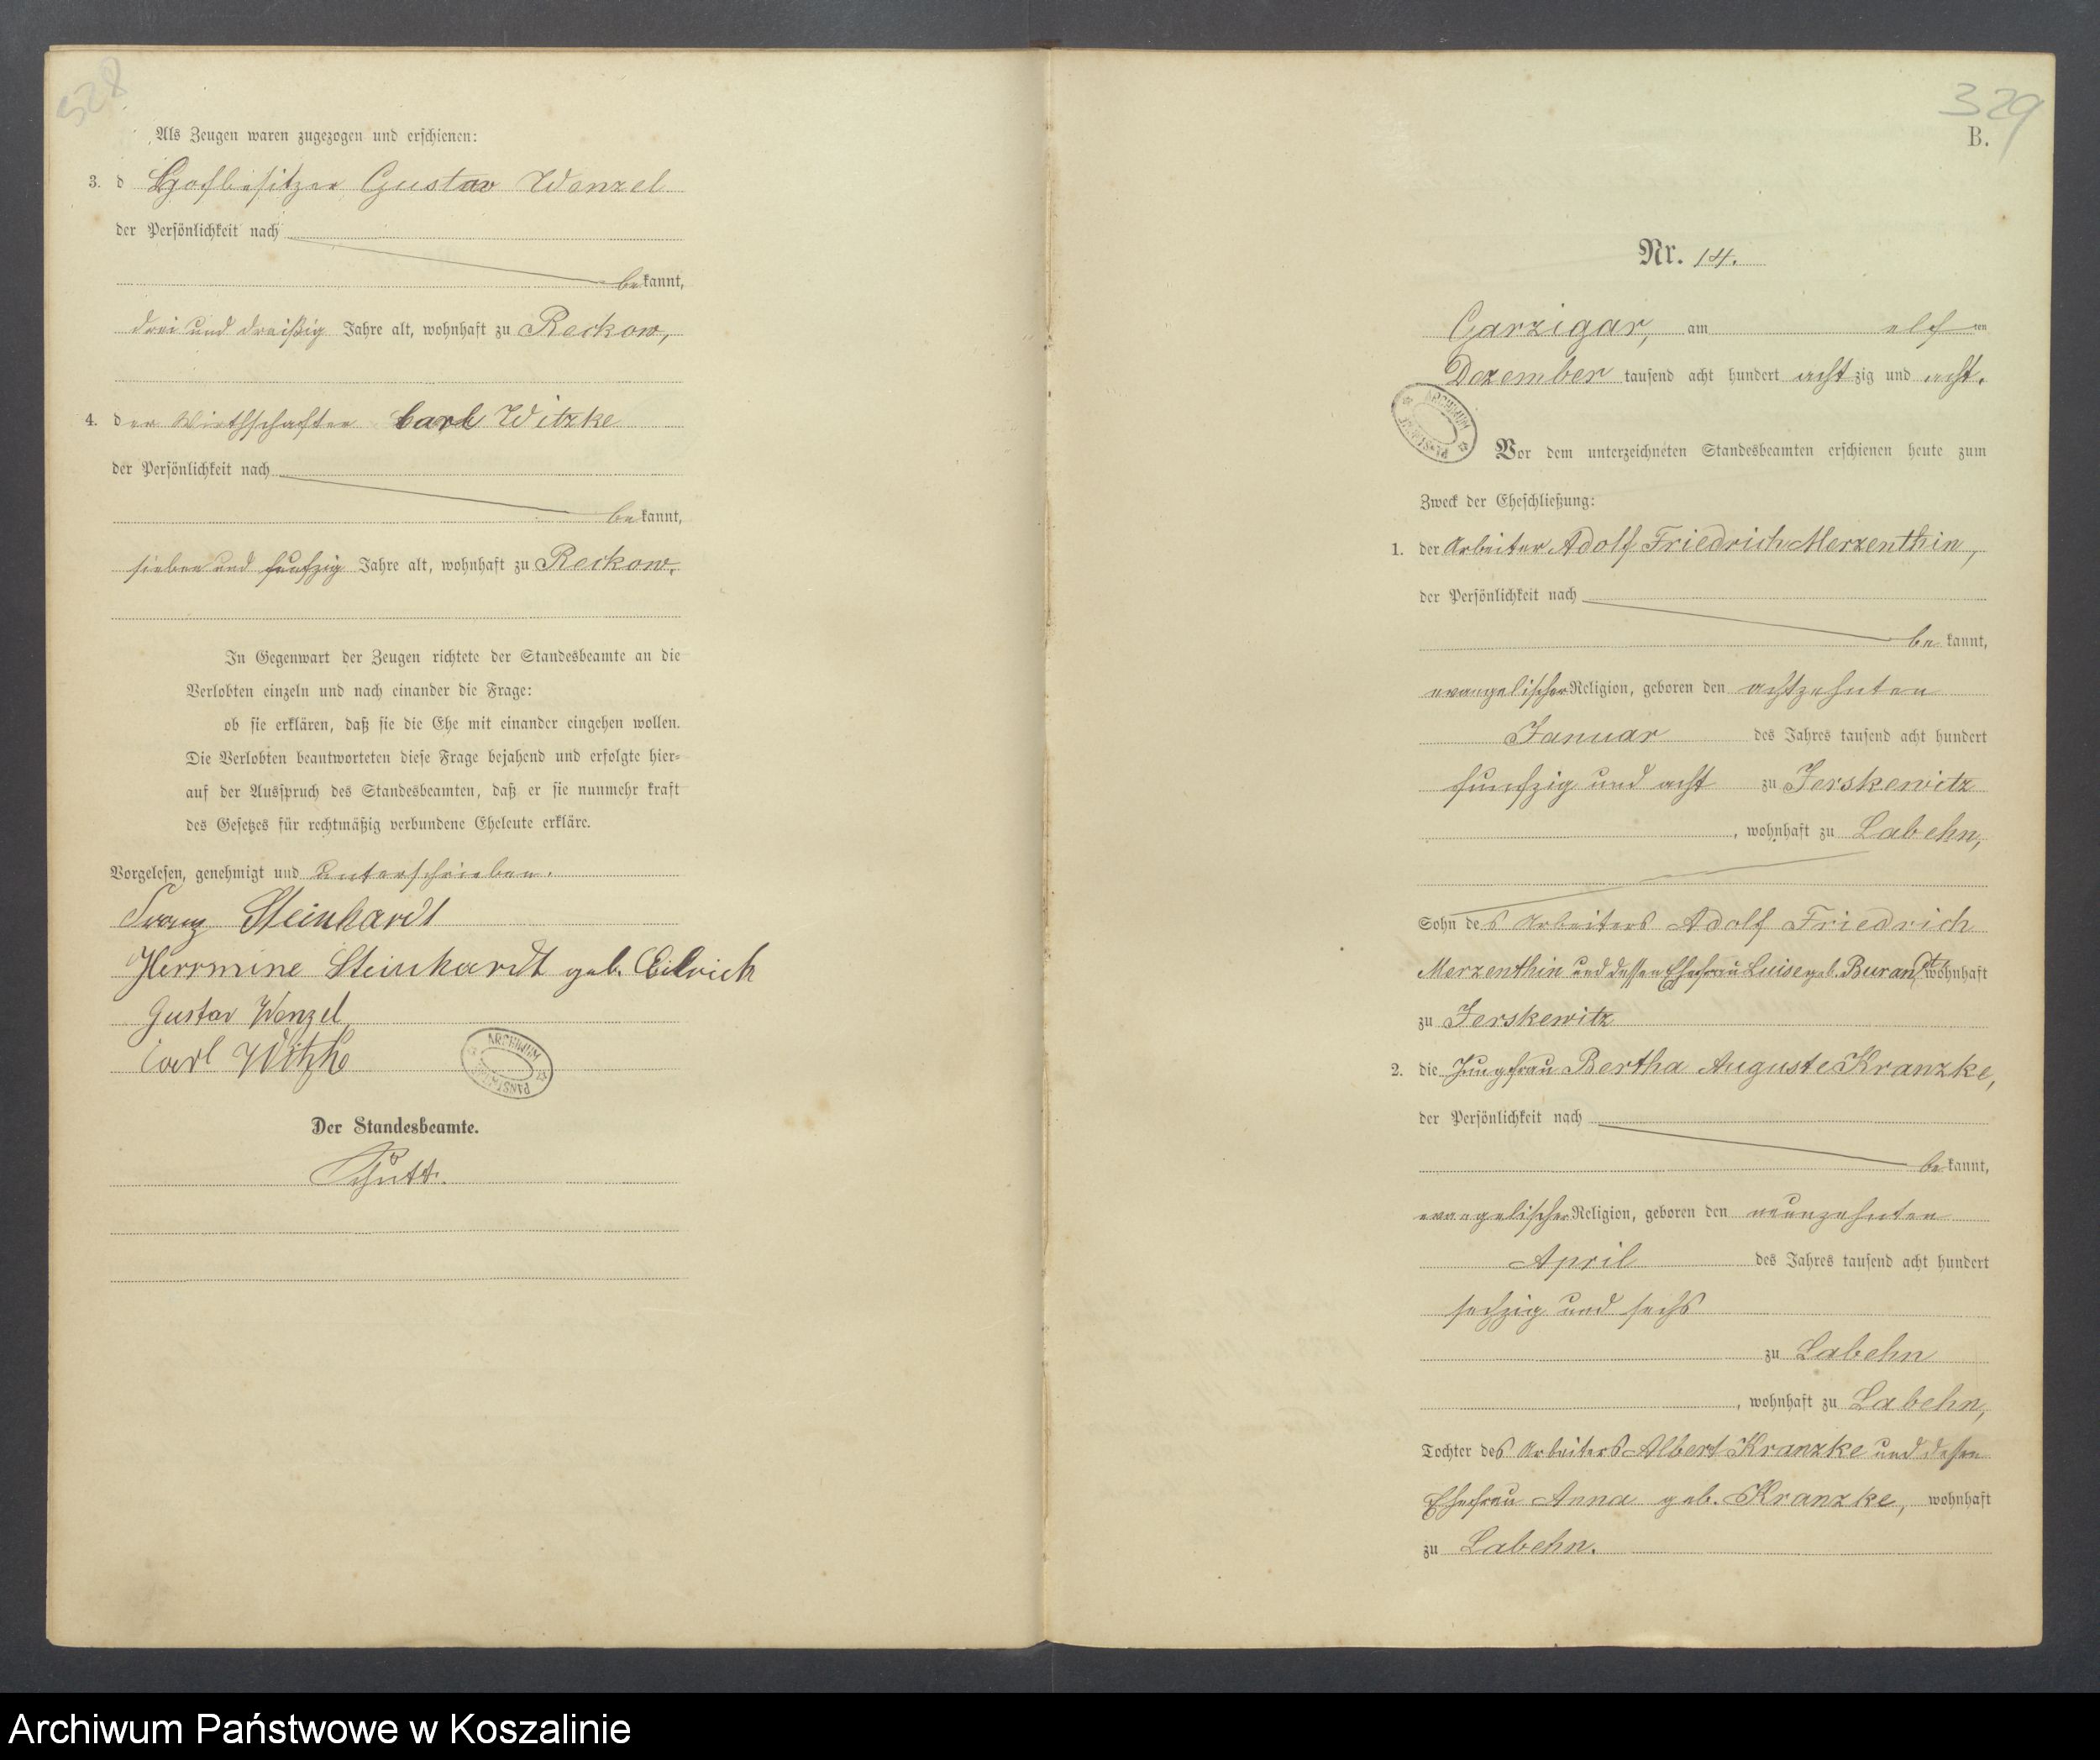 328
Als Zeugen waren zugezogen und erschienen:
3. d Hofbesitzer Gustav Wenzel
der Persönlichkeit nach
bekannt,
drei und dreißig Jahre alt, wohnhaft zu Reckow,
4. der Wirthschafter Carl Witzke
der Persönlichkeit nach
bekannt,
sieben und funfzig Jahre alt, wohnhaft zu Reckow.
In Gegenwart der Zeugen richtete der Standesbeamte an die
Verlobten einzeln und nach einander die Frage:
ob sie erklären, daß sie die Ehe mit einander eingehen wollen.
Die Verlobten beantworteten diese Frage bejahend und erfolgte hier-
auf der Ausspruch des Standesbeamten, daß er sie nunmehr kraft
des Gesetzes für rechtmäßig verbundene Eheleute erkläre.
Vorgelesen, genehmigt und unterschrieben.
Franz Steinhardt
Herrmine Steinhardt geb. Eilrich
Gustav Wenzel
Carl Witzke
ARCHIWUM
Der Standesbeamte.
329
B.
Nr. 14.
Garzigar, am elften
Dezember tausend acht hundert achtzig und acht.
ARCHIWUM
Vor dem unterzeichneten Standesbeamten erschienen heute zum
Zweck der Eheschließung:
1. der Arbeiter Adolf Friedrich Merzenthin,
der Persönlichkeit nach
bekannt,
evangelischer Religion, geboren den achtzehnten
Januar des Jahres tausend acht hundert
funfzig und acht zu Jerskewitz
, wohnhaft zu Labehn,
Sohn des Arbeiters Adolf Friedrich
Merzenthin und dessen Ehefrau Luise geb. Burandt, wohnhaft
zu Jerskewitz
2. die Jungfrau Bertha Auguste Kranzke,
der Persönlichkeit nach
bekannt,
evangelischer Religion, geboren den neunzehnten
April des Jahres tausend acht hundert
sechzig und sechs
zu Labehn
, wohnhaft zu Labehn,
Tochter des Arbeiters Albert Kranzke und dessen
Ehefrau Anna geb. Kranzke, wohnhaft
zu Labehn.
Archiwum Państwowe w Koszalinie